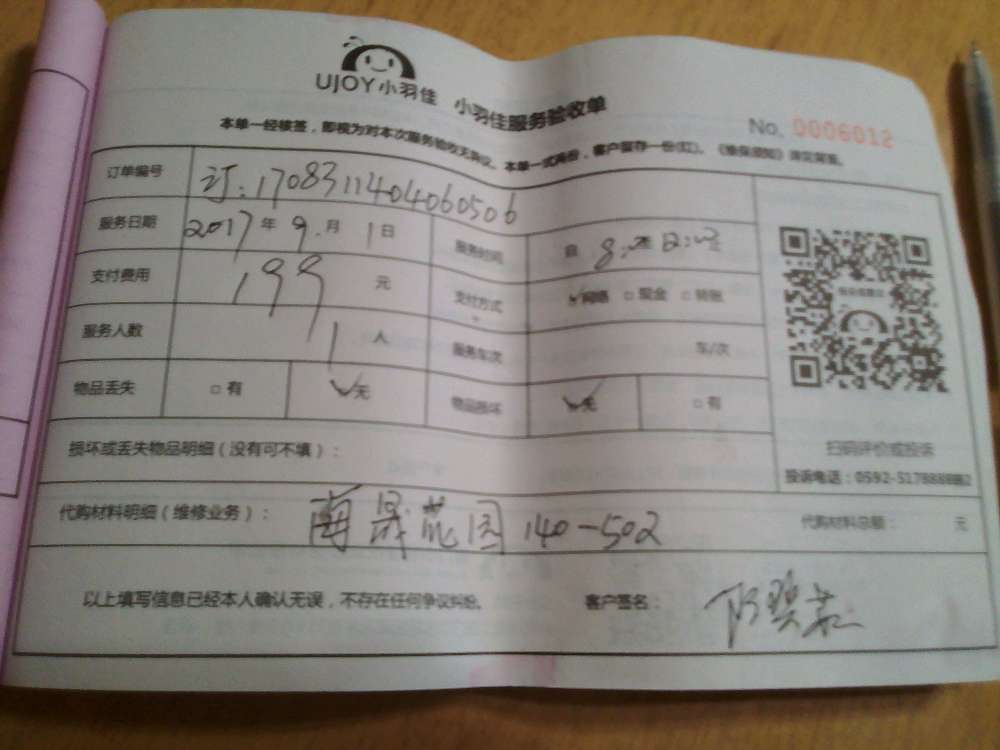 UJOY小羽佳 小羽佳服务验收单
No. 0006012
本单一经核签，即视为对本次服务验收无异议。本单一式两份，客户留存一份(红)。《维保须知》详见背面。
订单编号 订:1708311404060506
服务日期 2017年 9.月 1日 服务时间 自 8:
支付费用 199 元 支付方式 网络 □ 现金 □ 转账
服务人数 1 人 服务车次 车/次
物品丢失 □ 有 ✓无 物品损坏 ✓无 □ 有
扫码评价或投诉
损坏或丢失物品明细（没有可不填）：
投诉电话：0592-5178888
代购材料明细（维修业务）： 花园 140-502 代购材料总额： 元
以上填写信息已经本人确认无误，不存在任何争议纠纷。 客户签名：